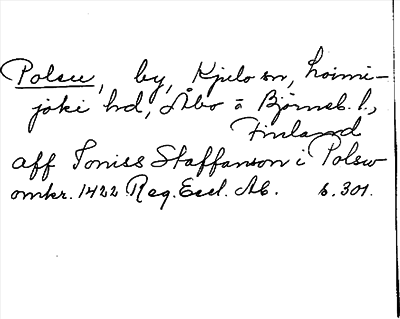 Polsu, by, Kjulo sn, Loimi-
joki hd, Åbo o Björneb. l.,
Finland
aff Joniss Staffansson i Polsw
omkr. 1422 Reg. Eccl. Ab. s. 301.